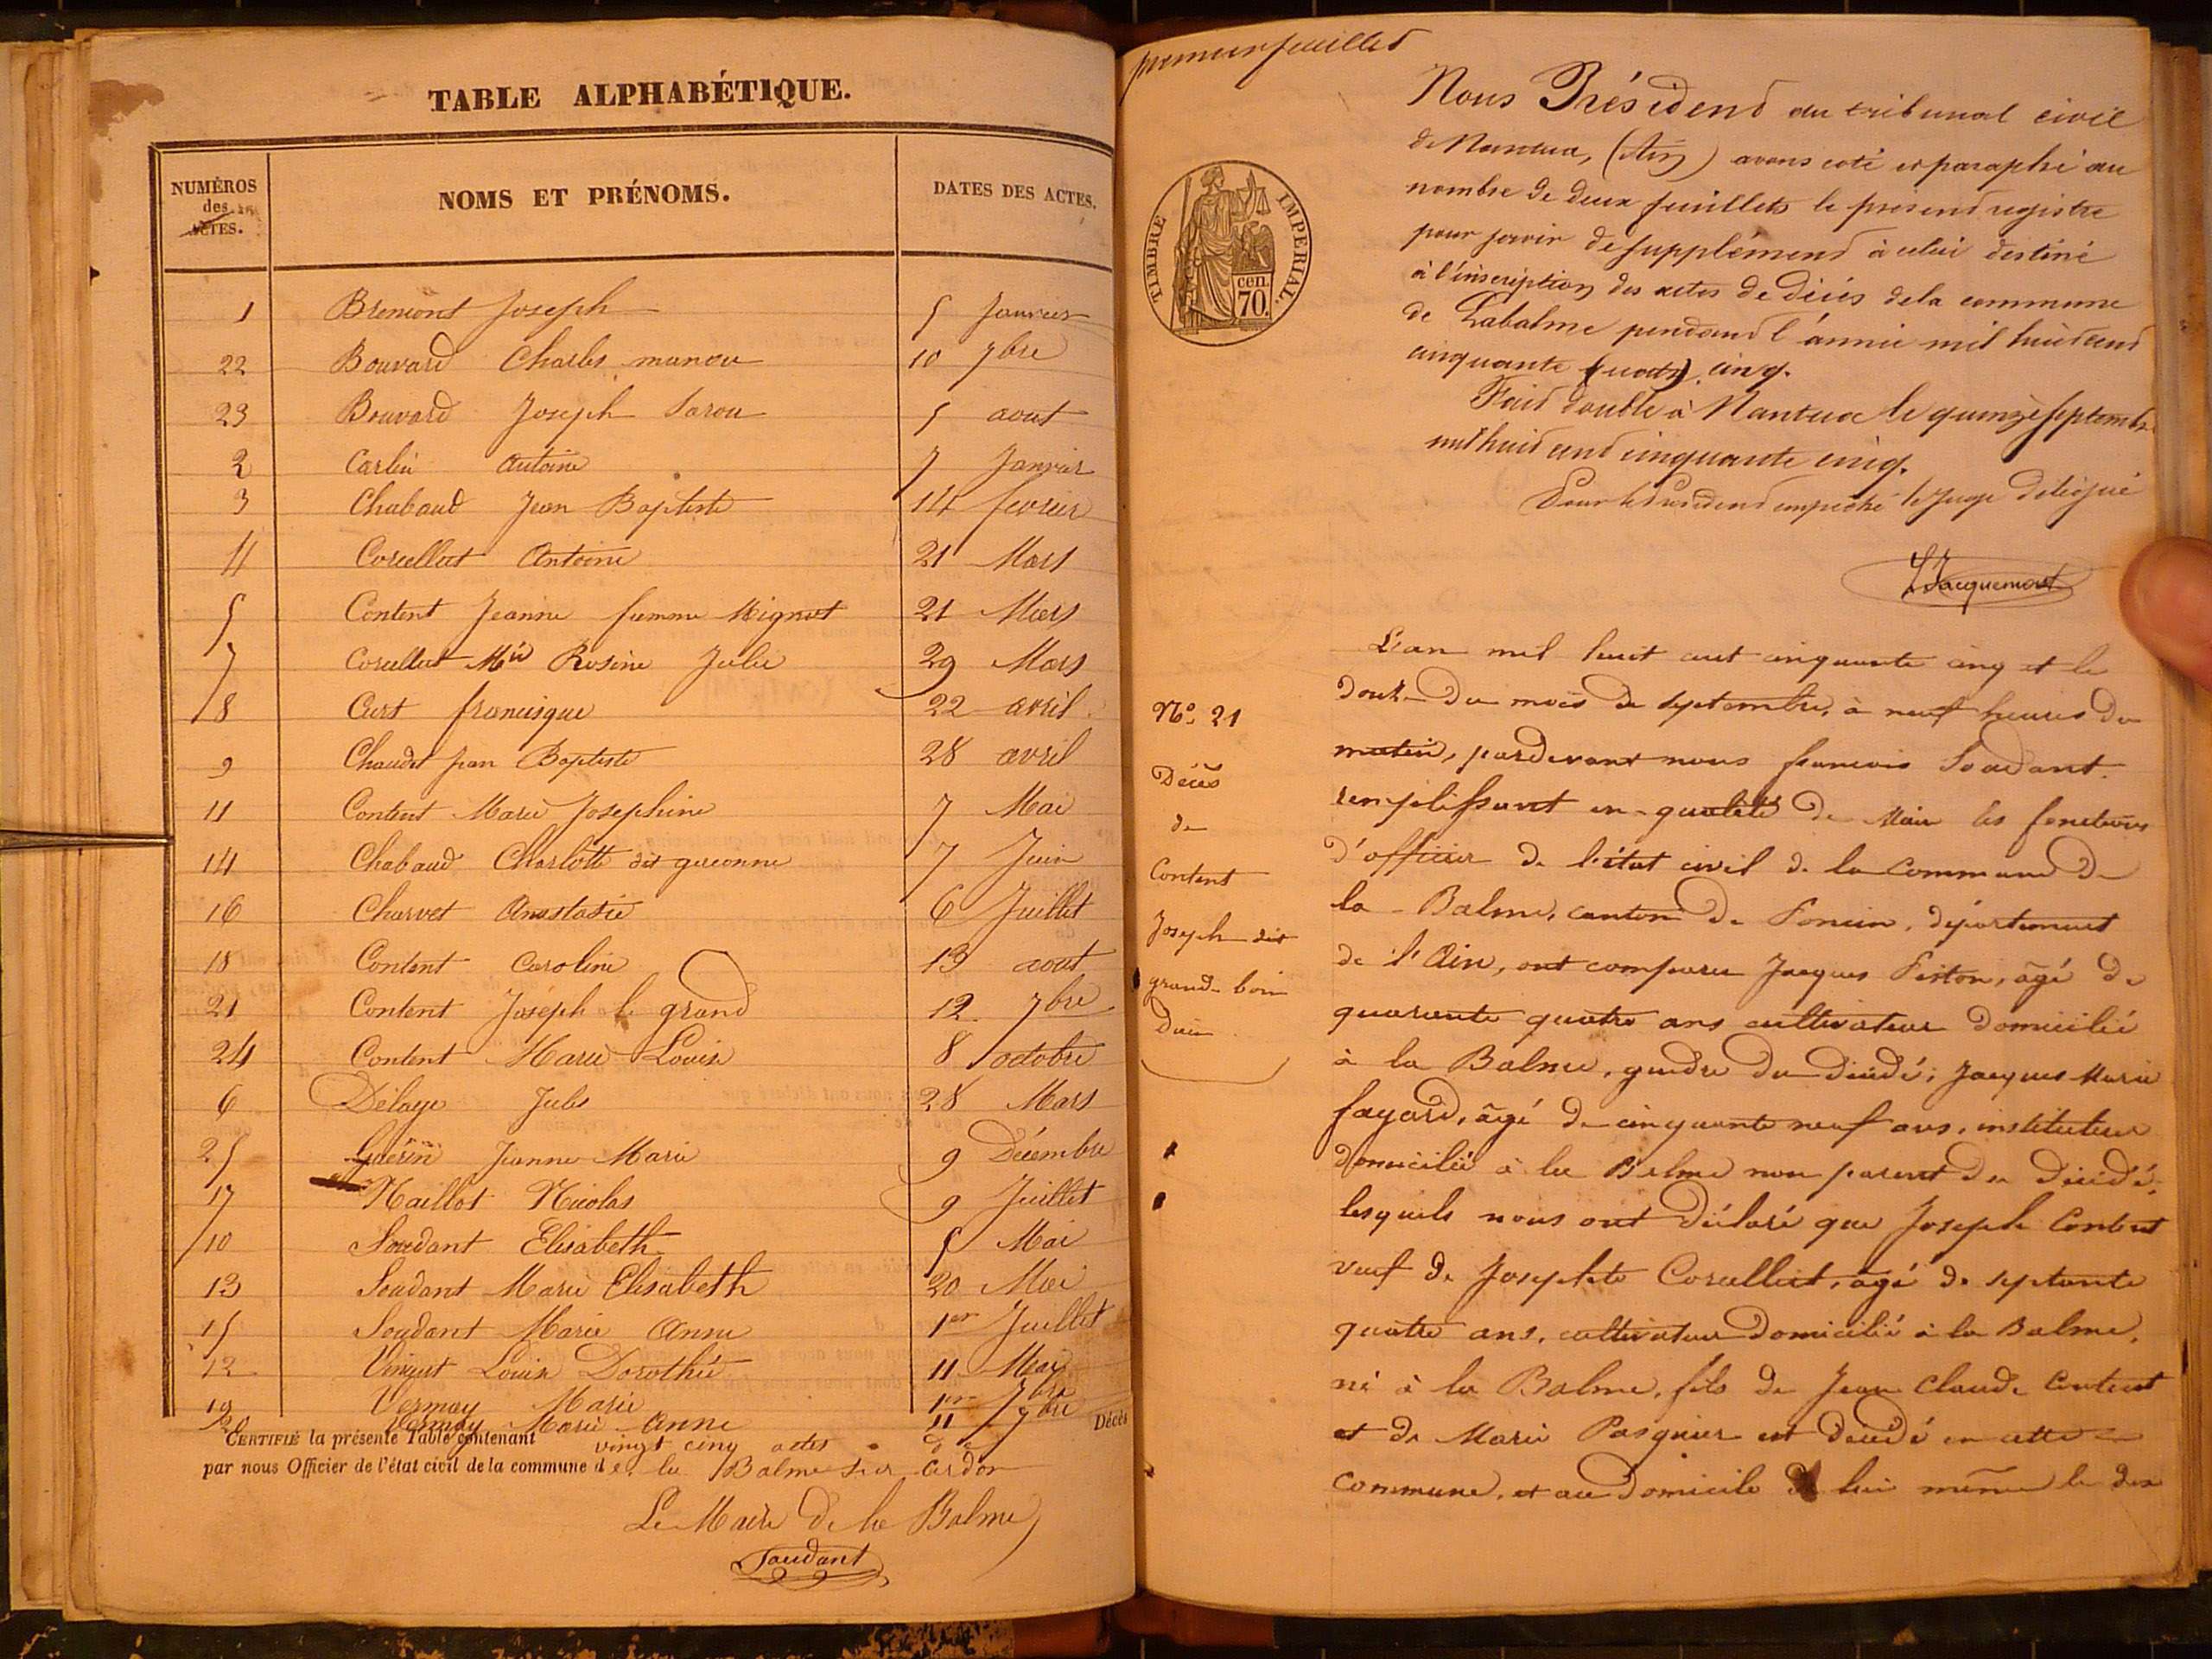 TABLE ALPHABÉTIQUE.
NUMÉROS des ACTES. NOMS ET PRÉNOMS. DATES DES ACTES.
1 Bremont Joseph 5 Janvier
22 Bouvard Charles 10 7bre
23 Bouvard Joseph 5 aout
2 Carlin Antoine 7 Janvier
3 Chabaud Jean Baptiste 14 fevrier
4 Corcellut Antoine 21 Mars
5 Content Jeanne femme Mignot 21 Mars
7 Corcellut Mie Rosine Julie 29 Mars
8 Curt francisque 22 avril
9 Chaudet jean Baptiste 28 avril
11 Content Marie Josephine 7 Mai
14 Chabaud Charlotte dit 7 Juin
16 Charvet Anastasie 6 Juillet
18 Content Caroline 13 aout
21 Content Joseph le grand 12 7bre
24 Content Marie Louise 8 octobre
6 Délaye Jules 28 Mars
25 Guérin Jeanne Marie 9 Décembre
17 Maillot Nicolas 9 Juillet
10 Soudant Elisabeth 5 Mai
13 Soudant Marie Elisabeth 20 Mai
15 Soudant Marie Anne 1er Juillet
12 Louise Dorothée 11 Mai
19 Vermay Marie 1er 7bre
20 Vermay Marie Anne 11 7bre
CERTIFIÉ la présente Table contenant vingt cinq actes de Décès
par nous Officier de l'état civil de la commune de la Balme sur Cerdon
Le Maire de la Balme
Soudant
premier feuillet
Nous Président du tribunal civil
de Nantua, (Ain) avons coté et paraphé au
nombre de deux feuillets le present registre
pour servir de supplément à celui destiné
à l'inscription des actes de décès de la commune
de Labalme pendant l'année mil huit cent
cinquante (quatre) cinq.
Fait double à Nantua le quinze septembre
mil huit cent cinquante cinq.
Pour le Président empeché le Juge délégué
Jacquemot
TIMBRE IMPERIAL.
cen.
70.
No. 21
Décès
de
Content
Joseph dit
grand-
L'an mil huit cent cinquante cinq et le
douze du mois de septembre, à neuf heures du
matin, pardevant nous francois Soudant
remplissant en qualité de Maire les fonctions
d'officier de l'état civil de la commune de
la Balme, canton de Poncin, département
de l'Ain, ont comparu Jacques Piston, âgé de
quarante quatre ans cultivateur domicilié
à la Balme, gendre du décédé; Jacques Marie
fayard, âgé de cinquante neuf ans, instituteur
domicilié à la Balme non parent du décédé,
lesquels nous ont déclaré que Joseph Content
veuf de Josephte Corcellut, âgé de septante
quatre ans, cultivateur domicilié à la Balme,
né à la Balme, fils de Jean Claude Content
et de Marie Pasquier est décédé en cette
commune, et au domicile de lui même le dix